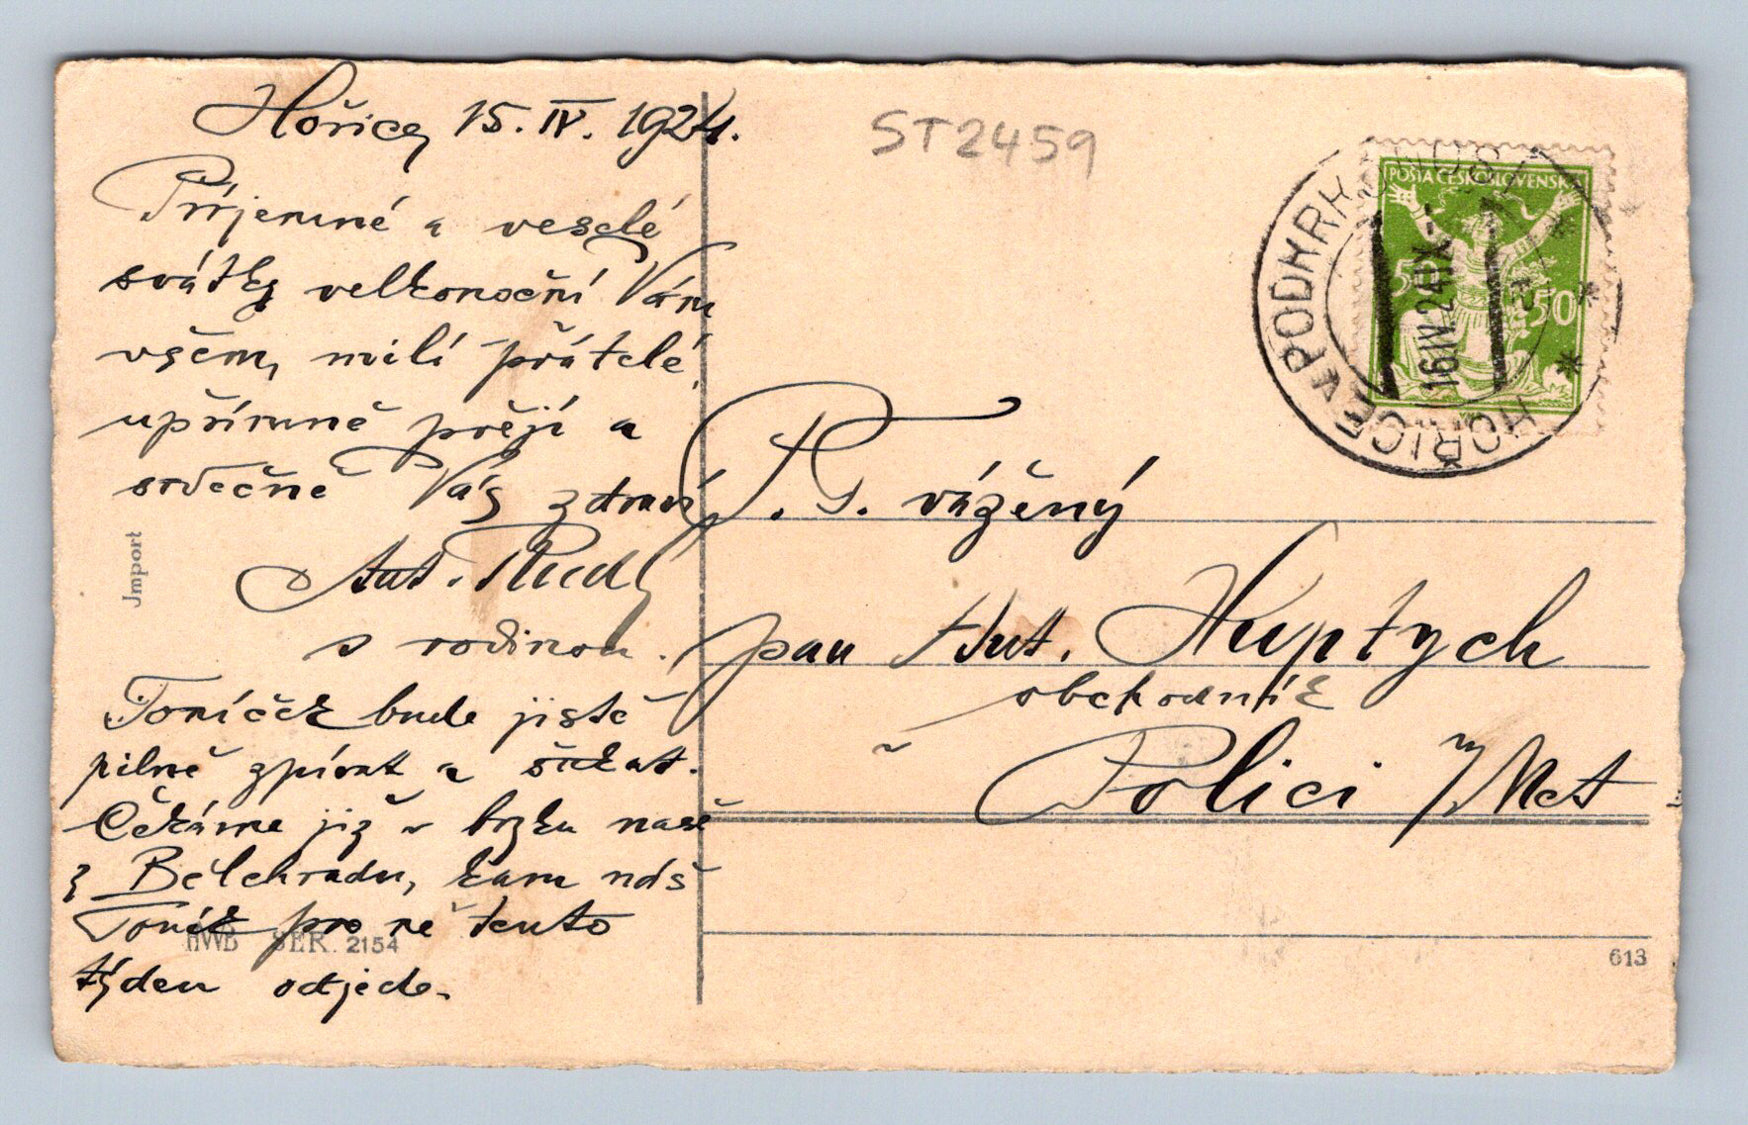 Hořice, 15. IV. 1924.
Příjemné a veselé
svátky velkonoční Vám
všem, milí přátelé,
upřímně přejí a
srdečně Vás zdraví
Ant.
s rodinou.
Toníček bude jistě
pilně zpívat a
Čekáme již v brzku naše
z Bělehradu, kam náš
Toník pro ně tento
týden odjede.
Jmport
HWB SER. 2154
ST2459
POŠTA ČESKOSLOVENSKÁ
50 50
HOŘICE V PODKRK
16 IV 24 IX-
P. T. vážený
pan Ant. Kuptych
obchodník
v Polici n/Met
613